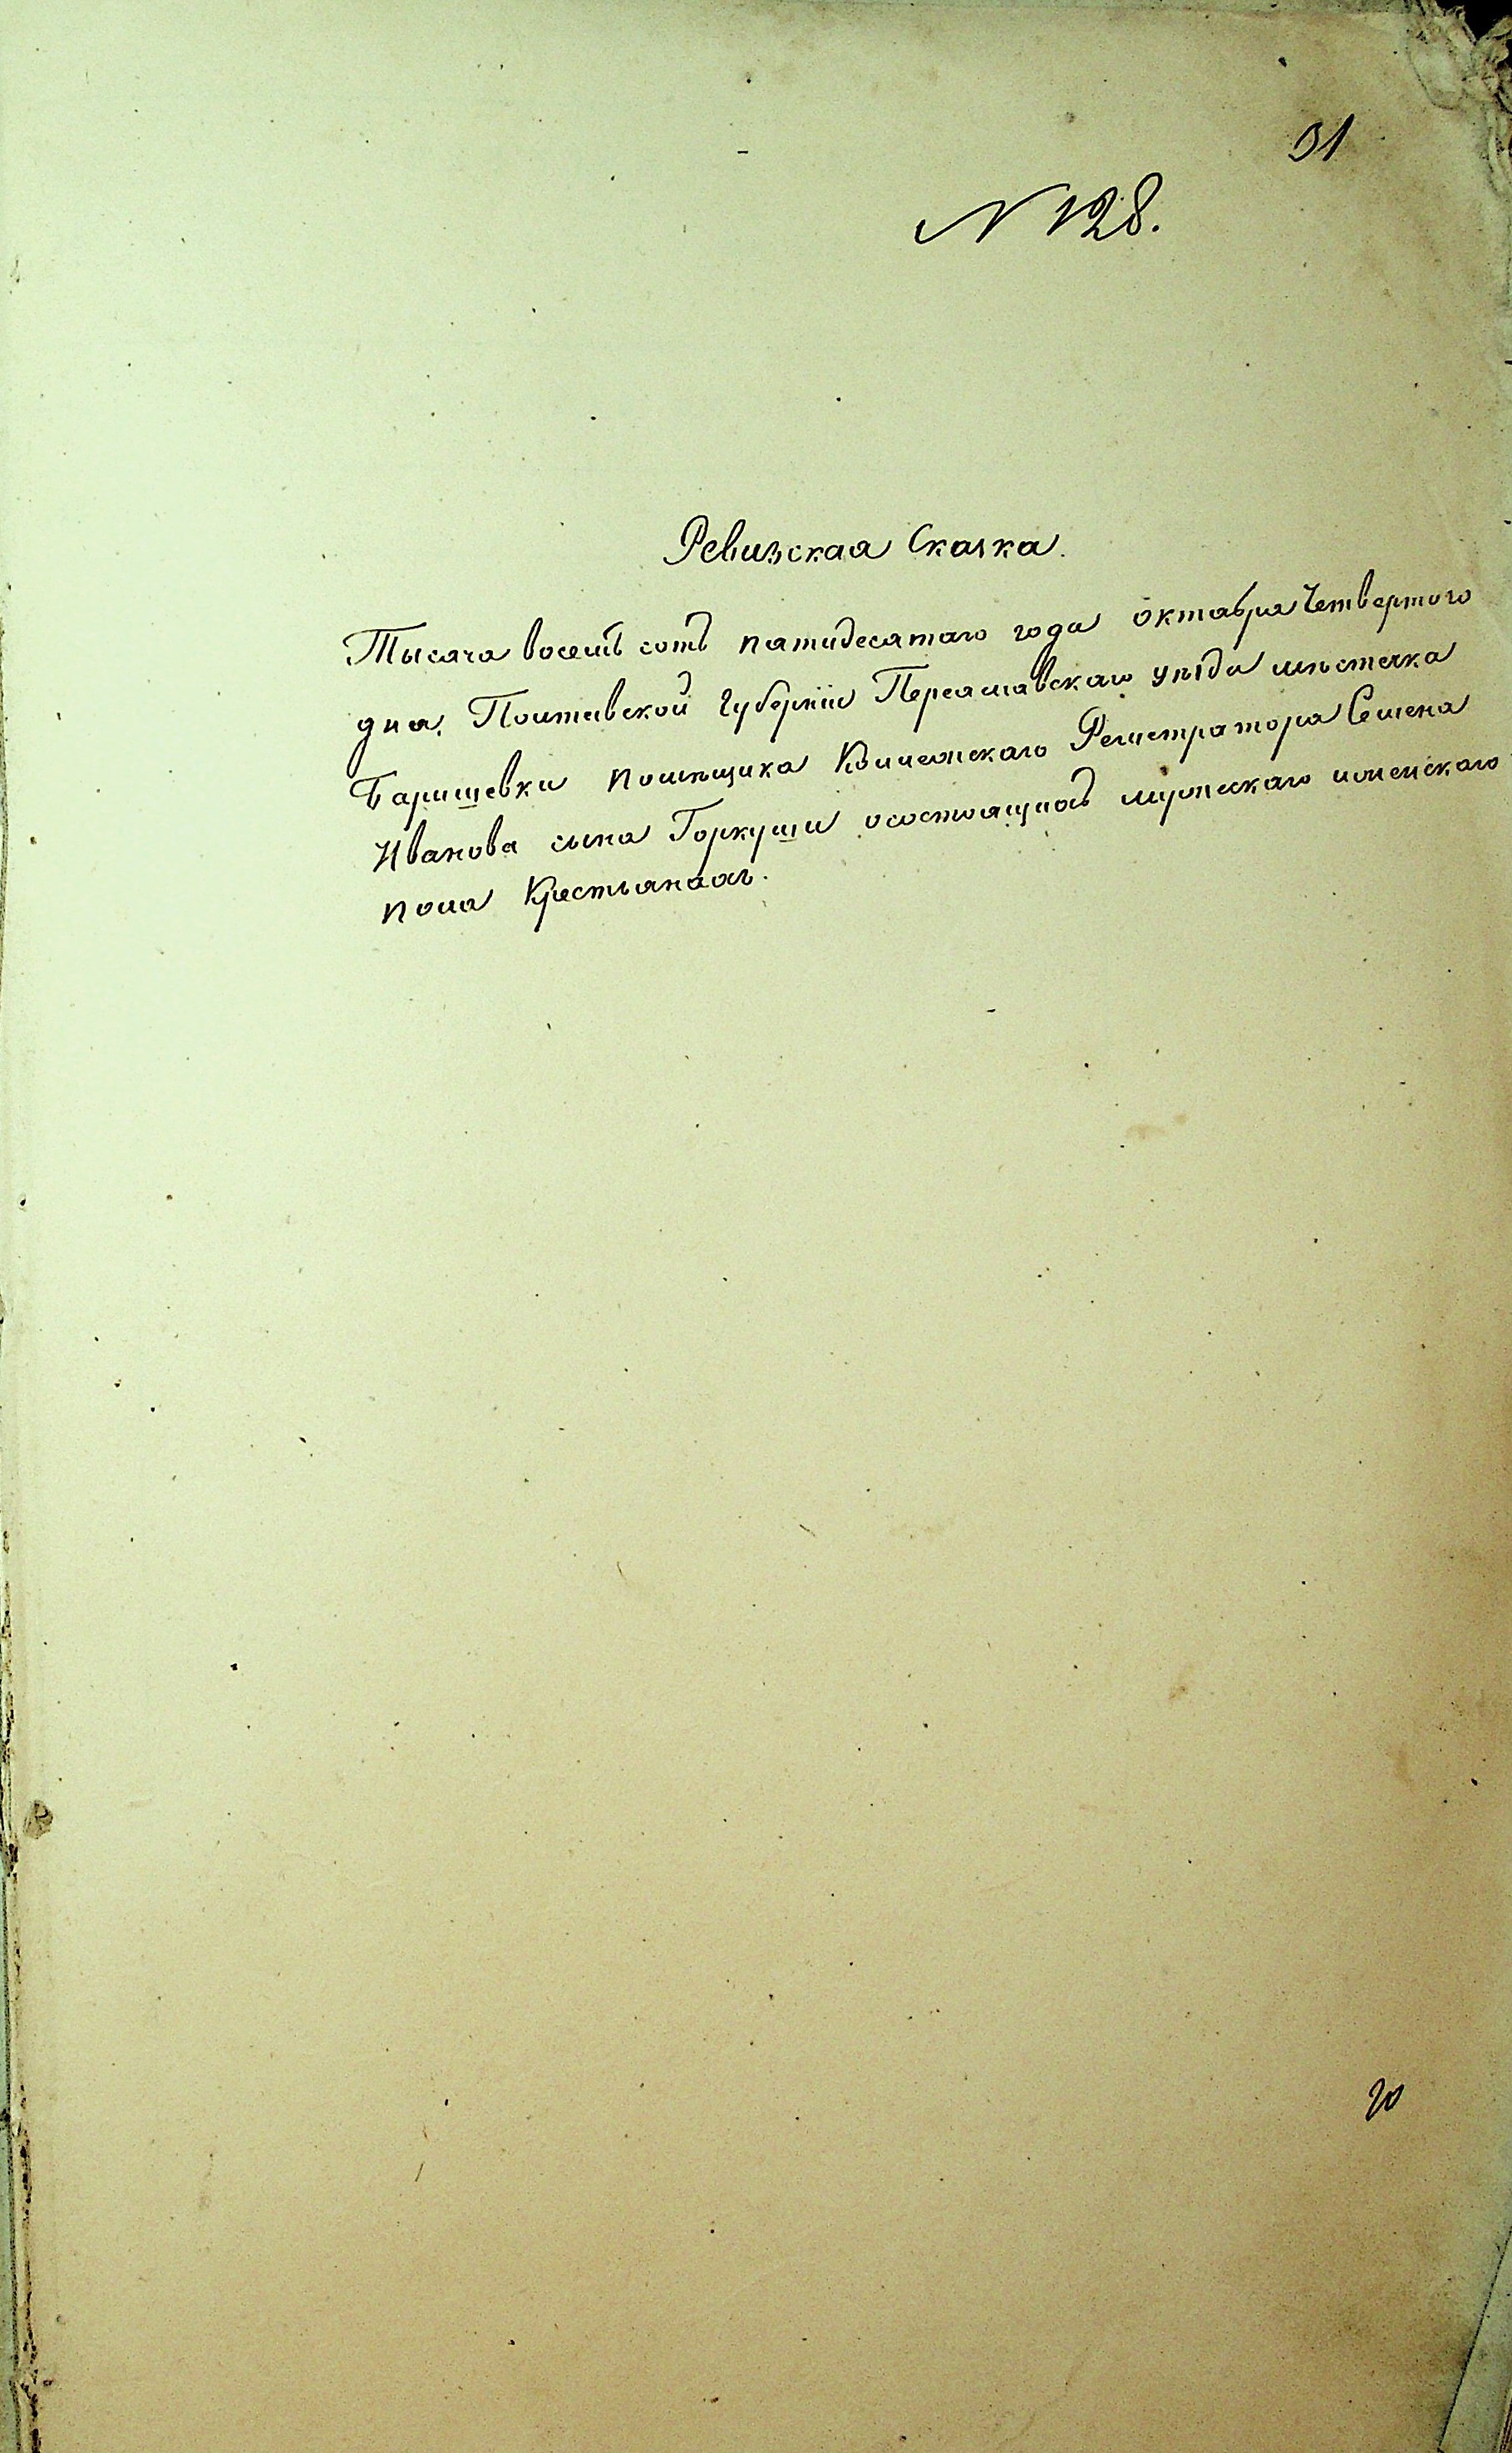 31
N 128.
Ревизская Сказка.
Тысяча восемь сотъ пятидесятаго года октября Четвертого
дня, Полтавской Губерніи Переяславскаго уѣзда мѣстечка
Баришевки помѣщика Коллежскаго Регистратора Семена
Иванова сына Горкуши осостоящихъ мужескаго иженскаго
пола Крестьянахъ.
20